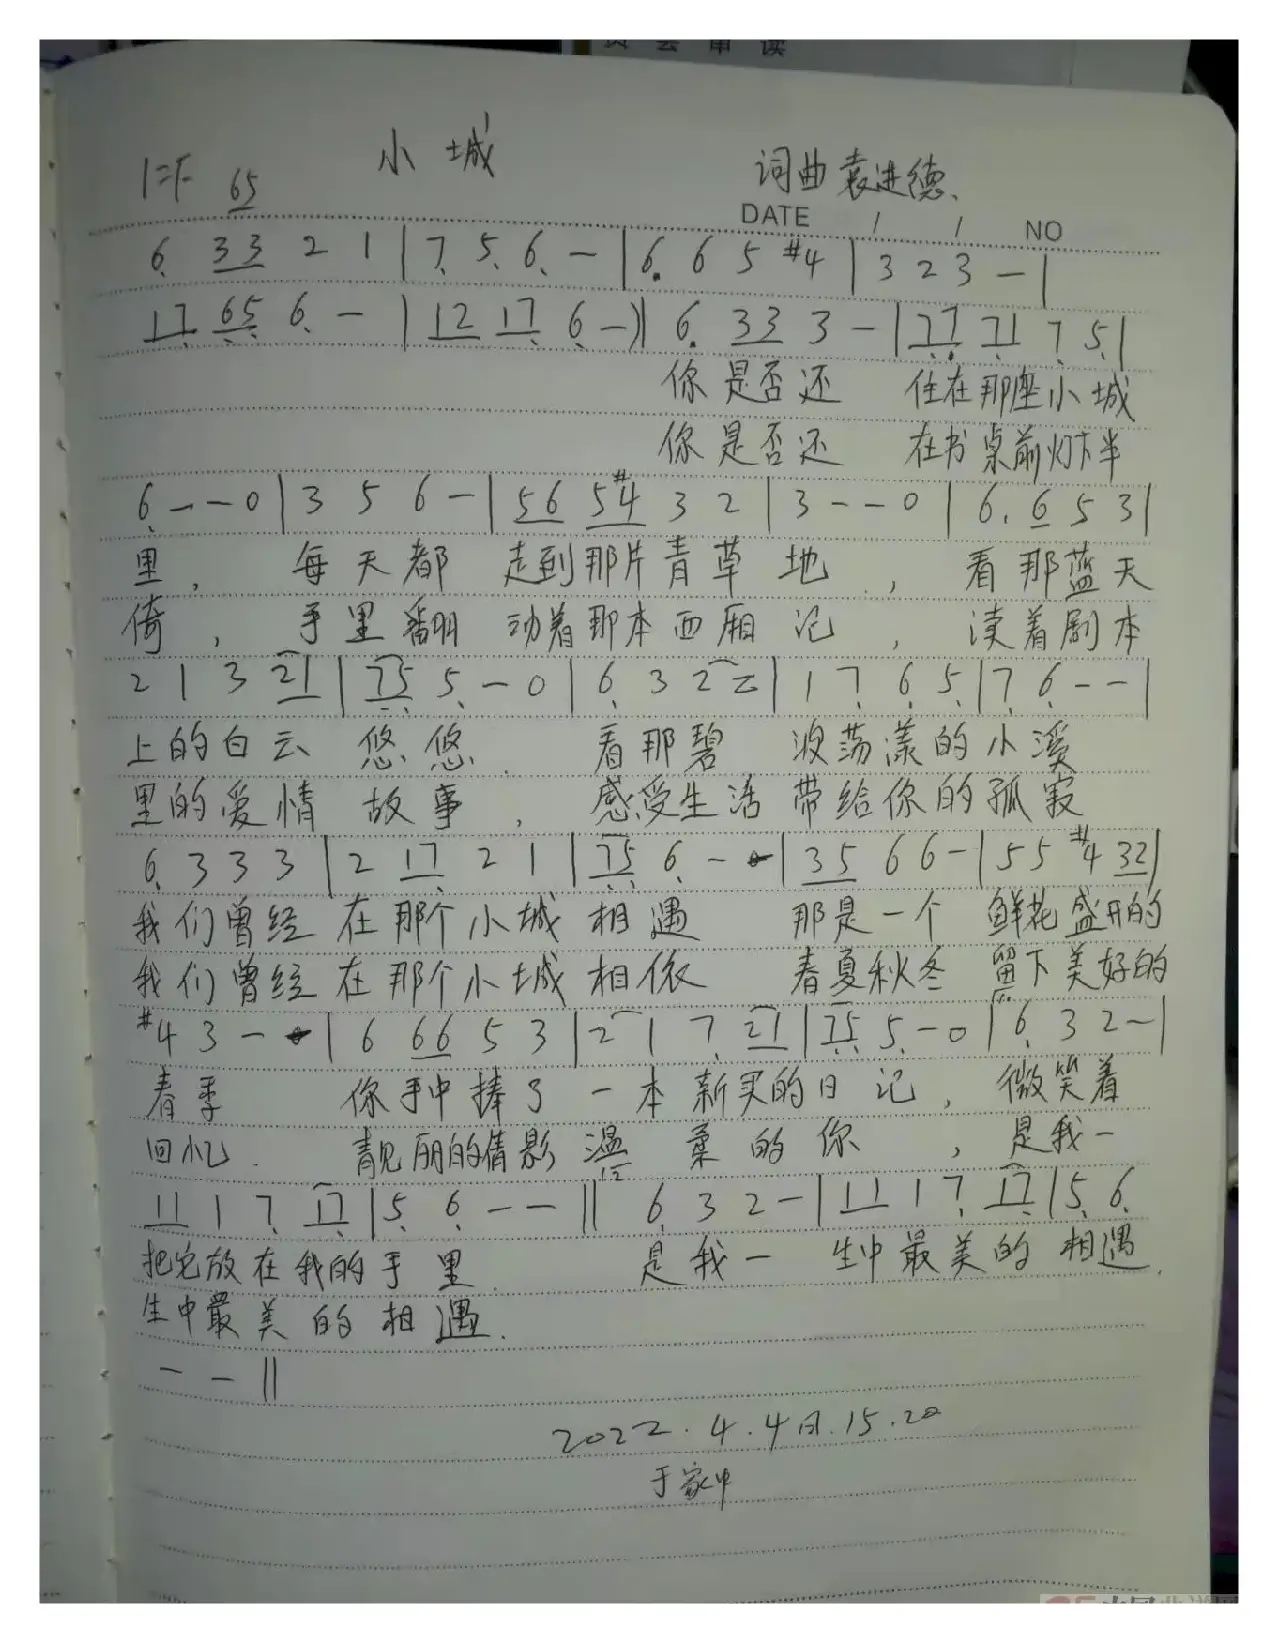 员会审读
小城
1=F 65
词曲袁进德、
DATE / / NO
6 33 2 1 | 7 5 6 - | 6. 6 5 #4 | 3 2 3 - |
17 65 6 - | 12 17 6 - || 6. 33 3 - | 77 71 7 5 |
你是否还 住在那座小城
你是否还 在书桌前灯下半
6 - - 0 | 3 5 6 - | 56 5#4 3 2 | 3 - - 0 | 6. 6 5 3 |
里， 每天都 走到那片青草地， 看那蓝天
倚， 手里翻 动着那本西厢记， 读着剧本
2 1 3 21 | 75 5 - 0 | 6 3 2 2 | 1 7 6 5 | 7 6 - - |
上的白云 悠悠、 看那碧 波荡漾的小溪
里的爱情 故事， 感受生活 带给你的孤寂
6 3 3 3 | 2 17 2 1 | 75 6 - - | 35 6 6 - | 5 5 #4 32 |
我们曾经 在那个小城 相遇 那是一个 鲜花盛开的
我们曾经 在那个小城 相依 春夏秋冬 留下美好的
#4 3 - - | 6 66 5 3 | 2 1 7 21 | 75 5 - 0 | 6 3 2 - |
春季 你手中捧了 一本新买的日记， 微笑着
回忆. 靓丽的倩影 温柔的你， 是我一
11 1 7 17 | 5 6 - - || 6 3 2 - | 11 1 7 17 | 5 6
把它放在我的手里. 是我一 生中最美的相遇.
生中最美的相遇.
- - ||
2022.4.4日.15.20
于家中